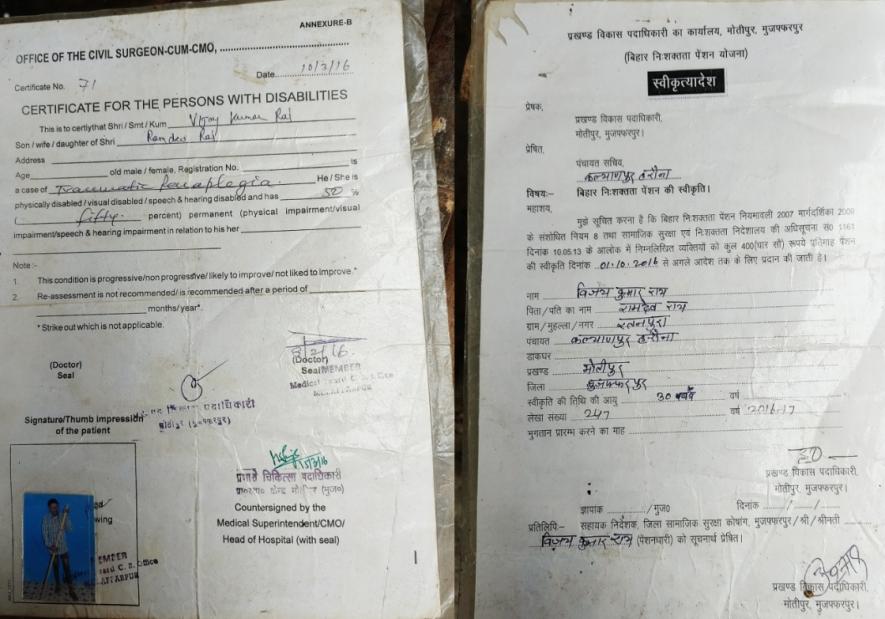 ANNEXURE-B
OFFICE OF THE CIVIL SURGEON-CUM-CMO, ........................
Certificate No. 71
Date 10/3/16
CERTIFICATE FOR THE PERSONS WITH DISABILITIES
This is to certiythat Shri / Smt / Kum Vijay Kumar Rai
Son / wife / daughter of Shri Ramdev Rai
Address
Age old male / female, Registration No. is
a case of Traumatic Paraplegia. He / She is
physically disabled / visual disabled / speech & hearing disabled and has 50 %
( fifty percent) permanent (physical impairment/visual
impairment/speech & hearing impairment in relation to his her
Note :-
1. This condition is progressive/non progressive/ likely to improve/ not liked to improve.*
2. Re-assessment is not recommended/ is recommended after a period of
months/ year*.
* Strike out which is not applicable.
(Doctor)
Seal
(Doctor)
Seal MEMBER
Medical Board C. S. Office
Signature/Thumb impression
of the patient
प्रभारी चिकित्सा पदाधिकारी
Countersigned by the
Medical Superintendent/CMO/
Head of Hospital (with seal)
MEMBER
प्रखण्ड विकास पदाधिकारी का कार्यालय, मोतीपुर, मुजफ्फरपुर
(बिहार निःशक्तता पेंशन योजना)
स्वीकृत्यादेश
प्रेषक,
प्रखण्ड विकास पदाधिकारी,
मोतीपुर, मुजफ्फरपुर।
प्रेषित,
पंचायत सचिव,
कल्याणपुर हरौना
विषयः- बिहार निःशक्तता पेंशन की स्वीकृति।
महाशय,
मुझे सूचित करना है कि बिहार निःशक्तता पेंशन नियमावली 2007 मार्गदर्शिका 2009
के संशोधित नियम 8 तथा सामाजिक सुरक्षा एवं निःशक्तता निदेशालय की अधिसूचना सं0 1161
दिनांक 10.05.13 के आलोक में निम्नलिखित व्यक्तियों को कुल 400(चार सौ) रूपये प्रतिमाह पेंशन
की स्वीकृति दिनांक 01.10.2016 से अगले आदेश तक के लिए प्रदान की जाती है।
नाम विजय कुमार राय
पिता/पति का नाम रामदेव राय
ग्राम/मुहल्ला/नगर रतनपुरा
पंचायत कल्याणपुर हरौना
डाकघर
प्रखण्ड मोतीपुर
जिला मुजफ्फरपुर
स्वीकृति की तिथि की आयु 30 वर्ष वर्ष
लेखा संख्या 247 वर्ष 2016-17
भुगतान प्रारम्भ करने का माह
प्रखण्ड विकास पदाधिकारी,
मोतीपुर, मुजफ्फरपुर।
ज्ञापांक /मुज0 दिनांक / /
प्रतिलिपिः- सहायक निदेशक, जिला सामाजिक सुरक्षा कोषांग, मुजफ्फरपुर/श्री/श्रीमती
विजय कुमार राय (पेंशनधारी) को सूचनार्थ प्रेषित।
प्रखण्ड विकास पदाधिकारी,
मोतीपुर, मुजफ्फरपुर।